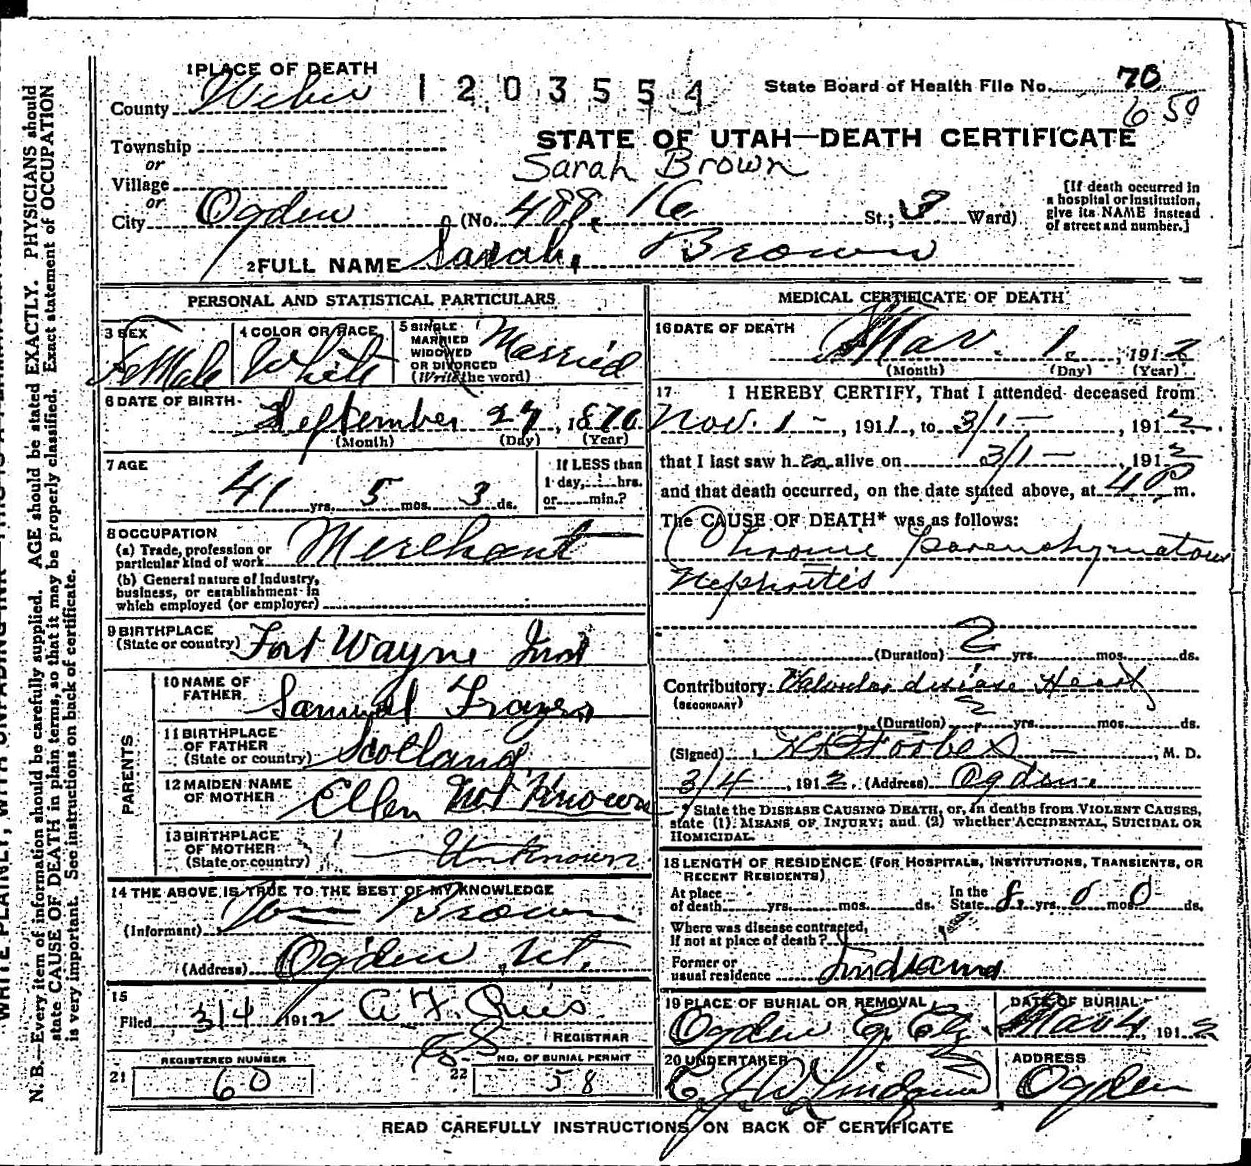 1 PLACE OF DEATH
County Weber
1203554
State Board of Health File No. 70
650
STATE OF UTAH—DEATH CERTIFICATE
Township
or
Village
or
Sarah Brown
City Ogden (No. 488, 16 St.; 3 Ward)
[If death occurred in
a hospital or institution,
give its NAME instead
of street and number.]
2 FULL NAME Sarah, Brown
PERSONAL AND STATISTICAL PARTICULARS
3 SEX
Female
4 COLOR OR RACE
White
5 SINGLE
MARRIED
WIDOWED
OR DIVORCED
(Write the word)
Married
6 DATE OF BIRTH
September 27, 1870
(Month) (Day) (Year)
7 AGE
41 yrs. 5 mos. 3 ds.
If LESS than
1 day, hrs.
or min.?
8 OCCUPATION
(a) Trade, profession or
particular kind of work Merchant
(b) General nature of industry,
business, or establishment in
which employed (or employer)
9 BIRTHPLACE
(State or country) Fort Wayne Ind
PARENTS
10 NAME OF
FATHER Samuel
11 BIRTHPLACE
OF FATHER
(State or country) Scotland
12 MAIDEN NAME
OF MOTHER Ellen Not Known
13 BIRTHPLACE
OF MOTHER
(State or country) Unknown
14 THE ABOVE IS TRUE TO THE BEST OF MY KNOWLEDGE
(Informant) Wm Brown
(Address) Ogden Ut.
15
Filed 3/4 1912
REGISTRAR
REGISTERED NUMBER
21 60
NO. OF BURIAL PERMIT
22 58
MEDICAL CERTIFICATE OF DEATH
16 DATE OF DEATH
Mar. 1, 1912
(Month) (Day) (Year)
17 I HEREBY CERTIFY, That I attended deceased from
Nov. 1 -, 1911, to 3/1 -, 1912.
that I last saw h er alive on 3/1 - 1912
and that death occurred, on the date stated above, at 4 P m.
The CAUSE OF DEATH* was as follows:
Chronic parenchymatous
Nephritis
(Duration) 2 yrs. mos. ds.
Contributory Valvular disease Heart
(SECONDARY)
(Duration) 2 yrs. mos. ds.
(Signed) M. D.
3/4, 1912. (Address) Ogden
* State the DISEASE CAUSING DEATH, or, in deaths from VIOLENT CAUSES,
state (1) MEANS OF INJURY; and (2) whether ACCIDENTAL, SUICIDAL OR
HOMICIDAL.
18 LENGTH OF RESIDENCE (FOR HOSPITALS, INSTITUTIONS, TRANSIENTS, OR
RECENT RESIDENTS)
At place
of death yrs. mos. ds.
In the
State 8 yrs. 0 mos 0 ds.
Where was disease contracted,
If not at place of death?
Former or
usual residence Indiana
19 PLACE OF BURIAL OR REMOVAL
Ogden
DATE OF BURIAL
Mar 4, 1912
20 UNDERTAKER
ADDRESS
Ogden
READ CAREFULLY INSTRUCTIONS ON BACK OF CERTIFICATE
N. B.—Every item of information should be carefully supplied. AGE should be stated EXACTLY. PHYSICIANS should
state CAUSE OF DEATH in plain terms, so that it may be properly classified. Exact statement of OCCUPATION
is very important. See instructions on back of certificate.